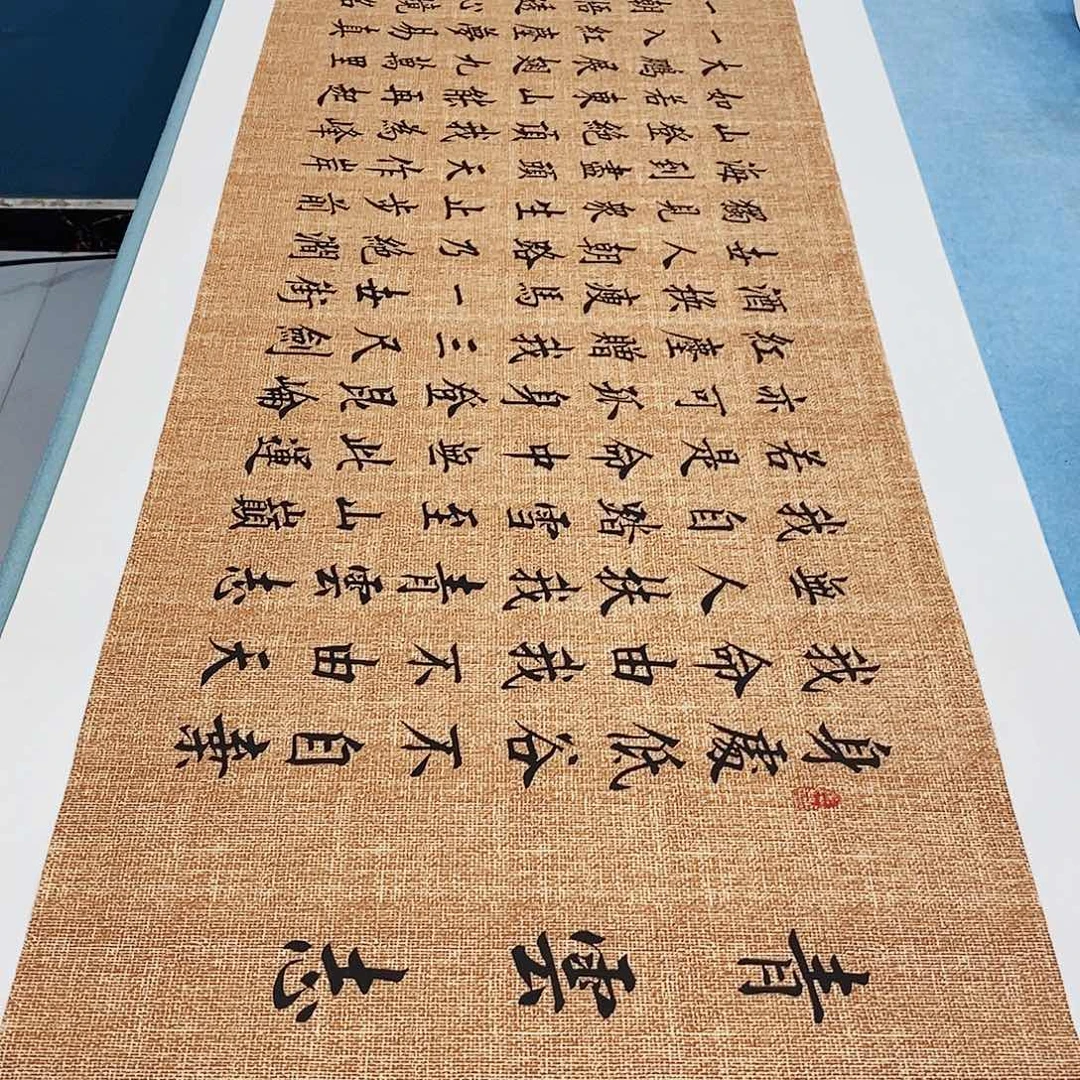 青雲志
身處低谷不自棄
我命由我不由天
無人扶我青雲志
我自踏雪至山巔
若是命中無此運
亦可孤身登昆崙
紅塵贈我三尺劍
酒換瘦馬一世街
世人朝路乃絕澗
獨見眾生止步前
海到盡頭天作岸
山登絕頂我為峰
如若東山能再起
大鵬展翅九萬里
一入紅塵夢易真
一朝悟